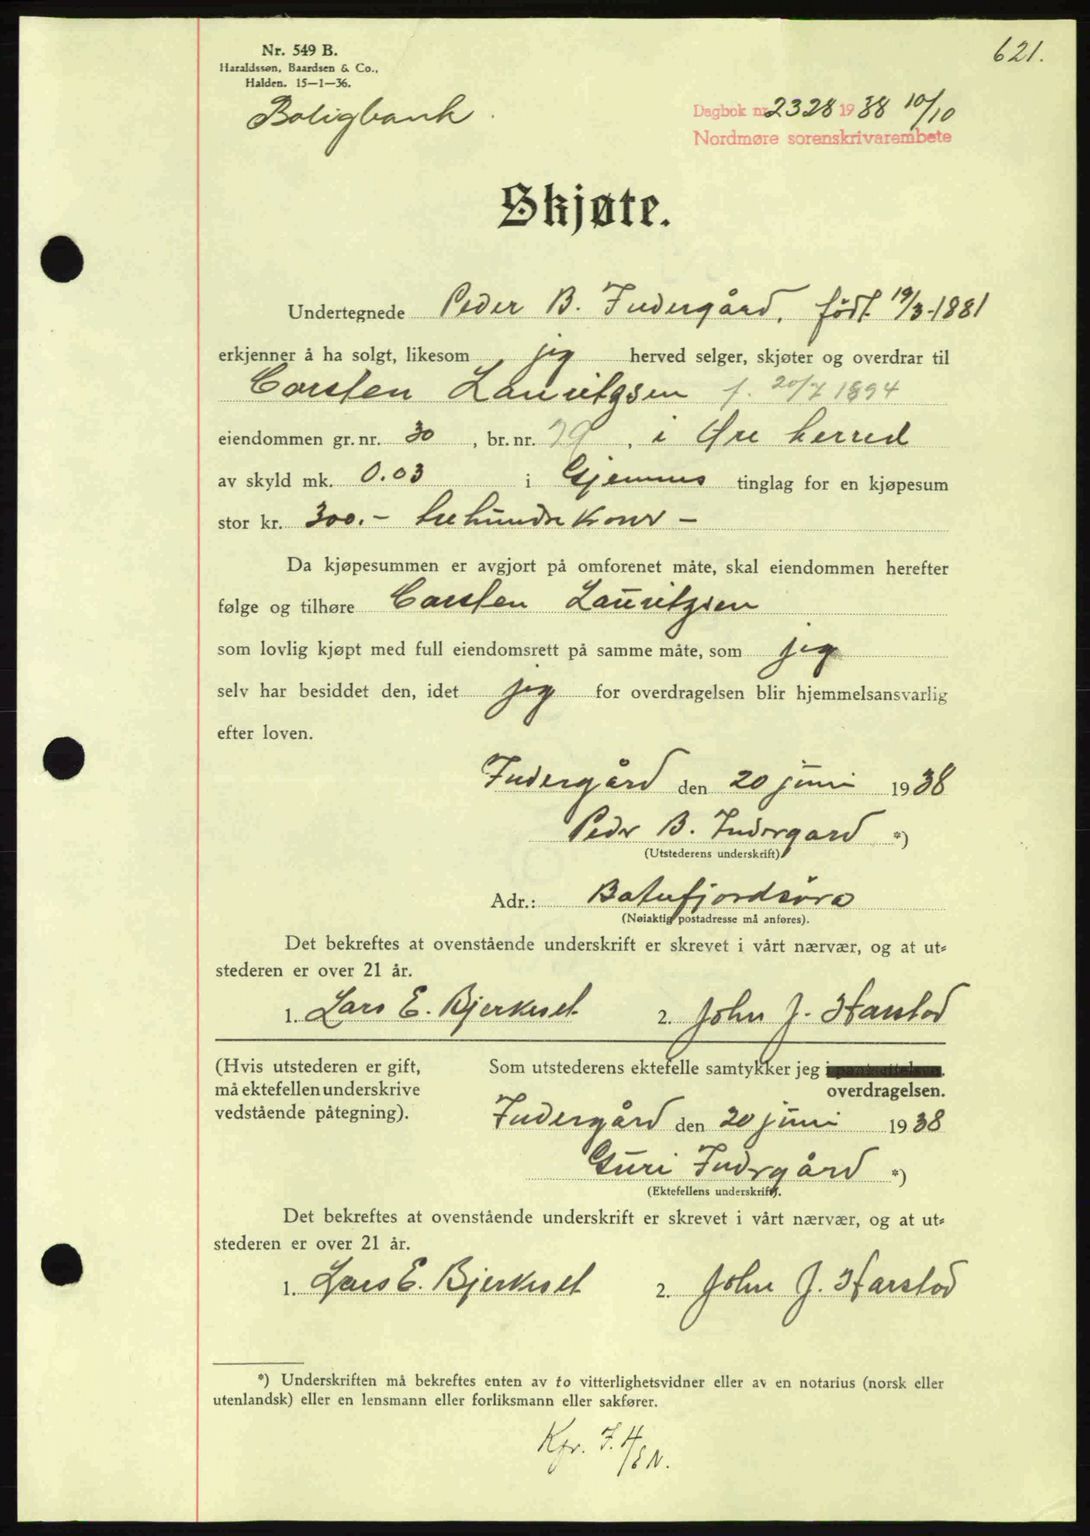 621.
Nr. 549 B.
Haraldssøn, Baardsen & Co.,
Halden. 15—1—36.
Boligbank.
Dagbok nr 2328 1938 10/10
Nordmøre sorenskrivarembete
Skjøte.
Undertegnede Peder B. Indergård, født 19/3-1881
erkjenner å ha solgt, likesom jeg herved selger, skjøter og overdrar til
Carsten Lauritzsen f. 20/7 1894
eiendommen gr. nr. 30, br. nr. 29, i Øre herred
av skyld mk. 0.03 i Gjemnes tinglag for en kjøpesum
stor kr. 300.- trehundrekroner -
Da kjøpesummen er avgjort på omforenet måte, skal eiendommen herefter
følge og tilhøre Carsten Lauritzsen
som lovlig kjøpt med full eiendomsrett på samme måte, som jeg
selv har besiddet den, idet jeg for overdragelsen blir hjemmelsansvarlig
efter loven.
Indergård den 20 juni 1938
Peder B. Indergard *)
(Utstederens underskrift)
Adr.: Batnfjordsøra
(Nøiaktig postadresse må anføres).
Det bekreftes at ovenstående underskrift er skrevet i vårt nærvær, og at ut-
stederen er over 21 år.
1. Lars E. Bjerkeset 2. John J. Harstad
(Hvis utstederen er gift,
må ektefellen underskrive
vedstående påtegning).
Som utstederens ektefelle samtykker jeg i
overdragelsen.
Indergård den 20 juni 1938
Guri Indergård *)
(Ektefellens underskrift).
Det bekreftes at ovenstående underskrift er skrevet i vårt nærvær, og at ut-
stederen er over 21 år.
1. Lars E. Bjerkeset 2. John J. Harstad
*) Underskriften må bekreftes enten av to vitterlighetsvidner eller av en notarius (norsk eller
utenlandsk) eller en lensmann eller forliksmann eller sakfører.
Kfr. J.H/EN.